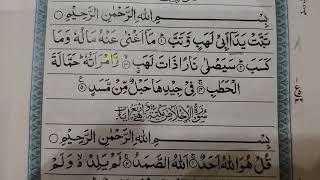 بِسْمِ اللّٰهِ الرَّحْمٰنِ الرَّحِيْمِ
تَبَّتْ يَدَآ اَبِيْ لَهَبٍ وَّتَبَّ ۞ مَآ اَغْنٰى عَنْهُ مَالُهٗ وَمَا
كَسَبَ ۞ سَيَصْلٰى نَارًا ذَاتَ لَهَبٍ ۞ وَّامْرَاَتُهٗ حَمَّالَةَ
الْحَطَبِ ۞ فِيْ جِيْدِهَا حَبْلٌ مِّنْ مَّسَدٍ ۞
بِسْمِ اللّٰهِ الرَّحْمٰنِ الرَّحِيْمِ
قُلْ هُوَ اللّٰهُ اَحَدٌ ۞ اَللّٰهُ الصَّمَدُ ۞ لَمْ يَلِدْ وَلَمْ